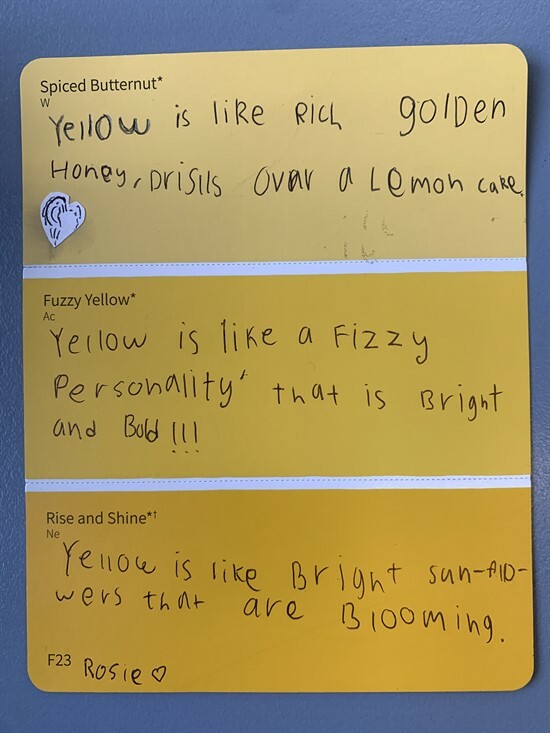 Spiced Butternut*
W
Yellow is like Rich golden
Honey, Drisils Over a Lemon cake.
Fuzzy Yellow*
Ac
Yellow is like a Fizzy
Personality that is Bright
and Bold!!!
Rise and Shine*†
Ne
Yellow is like Bright sun-flo-
wers that are Blooming.
F23 Rosie ♡